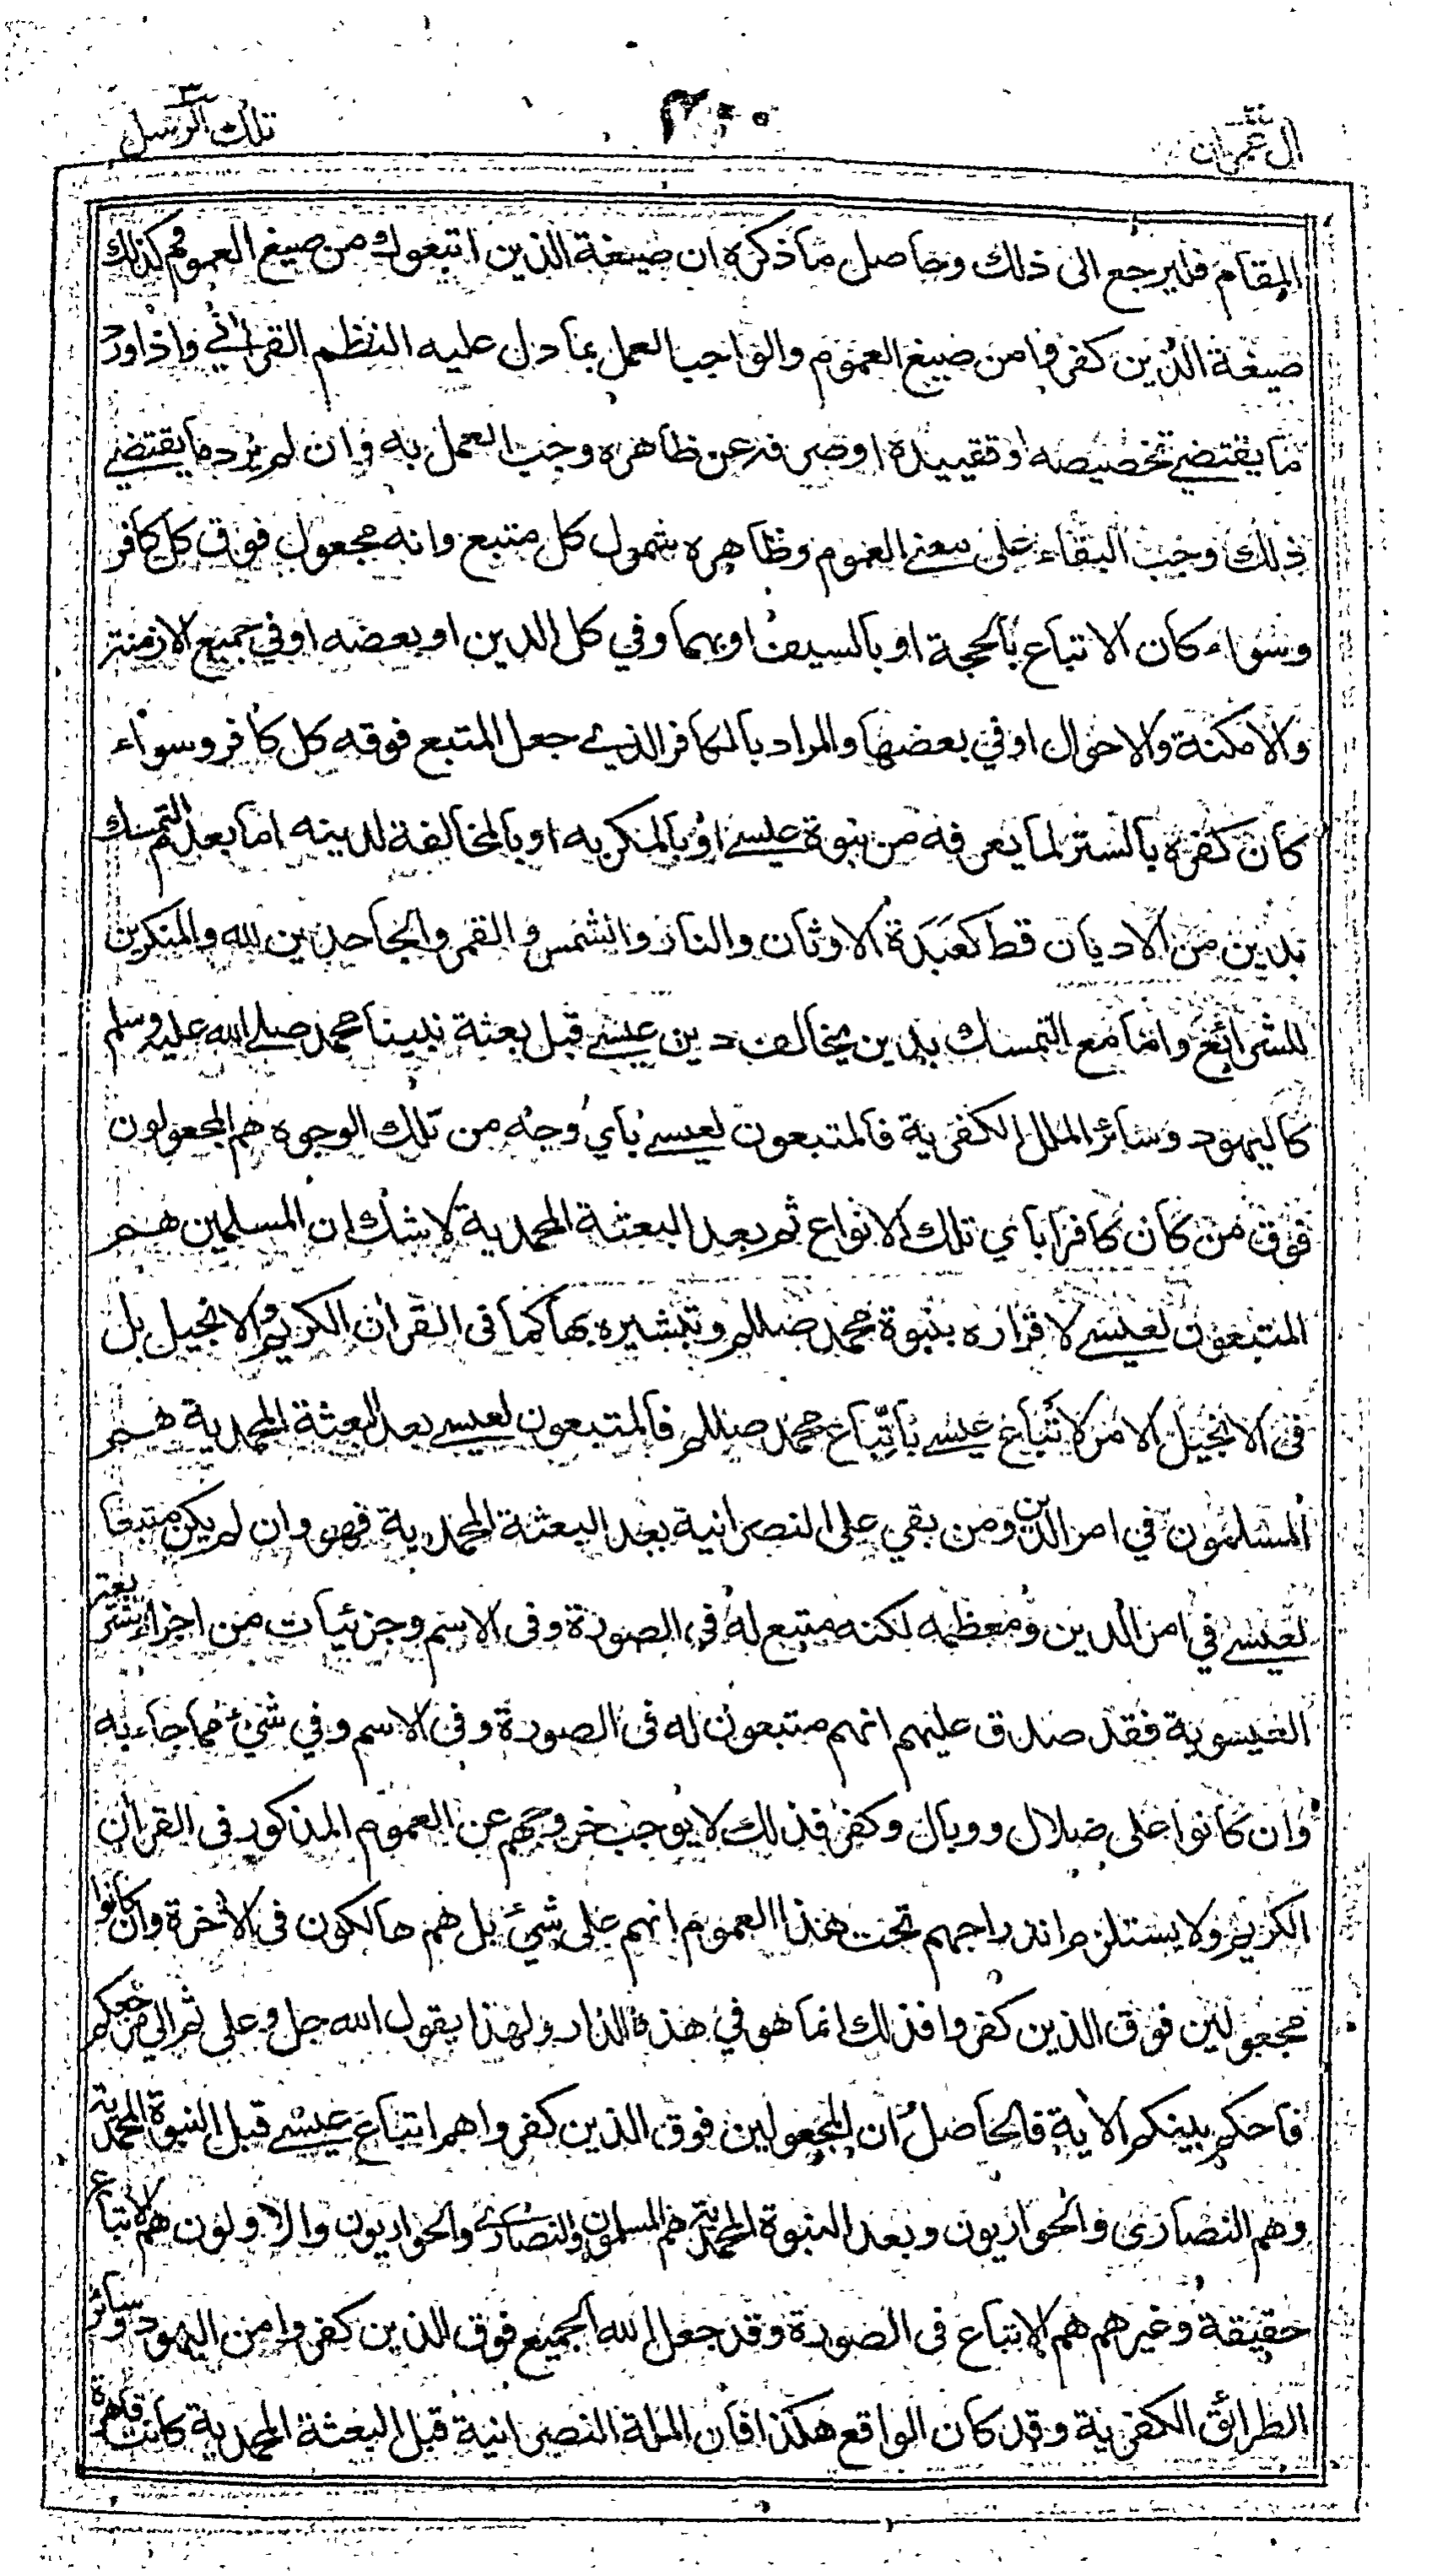 ال عمران
٢٠٠
تلك الرسل ٣
المقام فليرجع الى ذلك وحاصل ما ذكره ان صيغة الذين اتبعوك من صيغ العموم وكذلك
صيغة الذين كفروا من صيغ العموم والواجب العمل بما دل عليه النظم القرآني واذا ورد
ما يقتضي تخصيصه او تقييده او صرفه عن ظاهره وجب العمل به وان لم يرد ما يقتضي
ذلك وجب البقاء على معنى العموم وظاهره شمول كل متبع وانه مجعول فوق كل كافر
وسواء كان الاتباع بالحجة او بالسيف او بهما وفي كل الدين او بعضه او في جميع الازمنة
والامكنة والاحوال او في بعضها والمراد بالكافر الذي جعل المتبع فوقه كل كافر وسواء
كان كفره بالستر لما يعرفه من نبوة عيسى او بالمكر به او بالمخالفة لدينه اما بعدم التمسك
بدين من الاديان قط كعبدة الاوثان والنار والشمس والقمر والجاحدين لله والمنكرين
للشرائع واما مع التمسك بدين يخالف دين عيسى قبل بعثة نبينا محمد صلى الله عليه وسلم
كاليهود وسائر الملل الكفرية فالمتبعون لعيسى بأي وجه من تلك الوجوه هم المجعولون
فوق من كان كافرا بأي تلك الانواع ثم بعد البعثة المحمدية لا شك ان المسلمين هم
المتبعون لعيسى لاقراره بنبوة محمد صللم وتبشيره بها كما في القرآن الكريم والانجيل بل
في الانجيل الامر لاتباع عيسى باتباع محمد صللم فالمتبعون لعيسى بعد البعثة المحمدية هم
المسلمون في امر الدين ومن بقي على النصرانية بعد البعثة المحمدية فهو وان لم يكن متبعا
لعيسى في امر الدين ومعظمه لكنه متبع له في الصورة وفي الاسم وجزئيات من اجزاء الشريعة
العيسوية فقد صدق عليهم انهم متبعون له في الصورة وفي الاسم وفي شيء مما جاء به
وان كانوا على ضلال ووبال وكفر فذلك لا يوجب خروجهم عن العموم المذكور في القرآن
الكريم ولا يستلزم اندراجهم تحت هذا العموم انهم على شيء بل هم هالكون في الآخرة وان كانوا
مجعولين فوق الذين كفروا فذلك انما هو في هذه الدار ولهذا يقول الله جل وعلى ثم الي مرجعكم
فاحكم بينكم الآية فالحاصل ان المجعولين فوق الذين كفروا هم اتباع عيسى قبل النبوة المحمدية
وهم النصارى والحواريون وبعد النبوة المحمدية هم المسلمون والنصارى والحواريون والاولون هم الاتباع
حقيقة وغيرهم هم الاتباع في الصورة وقد جعل الله الجميع فوق الذين كفروا من اليهود وسائر
الطرائق الكفرية وقد كان الواقع هكذا فان الملة النصرانية قبل البعثة المحمدية كانت قاهرة